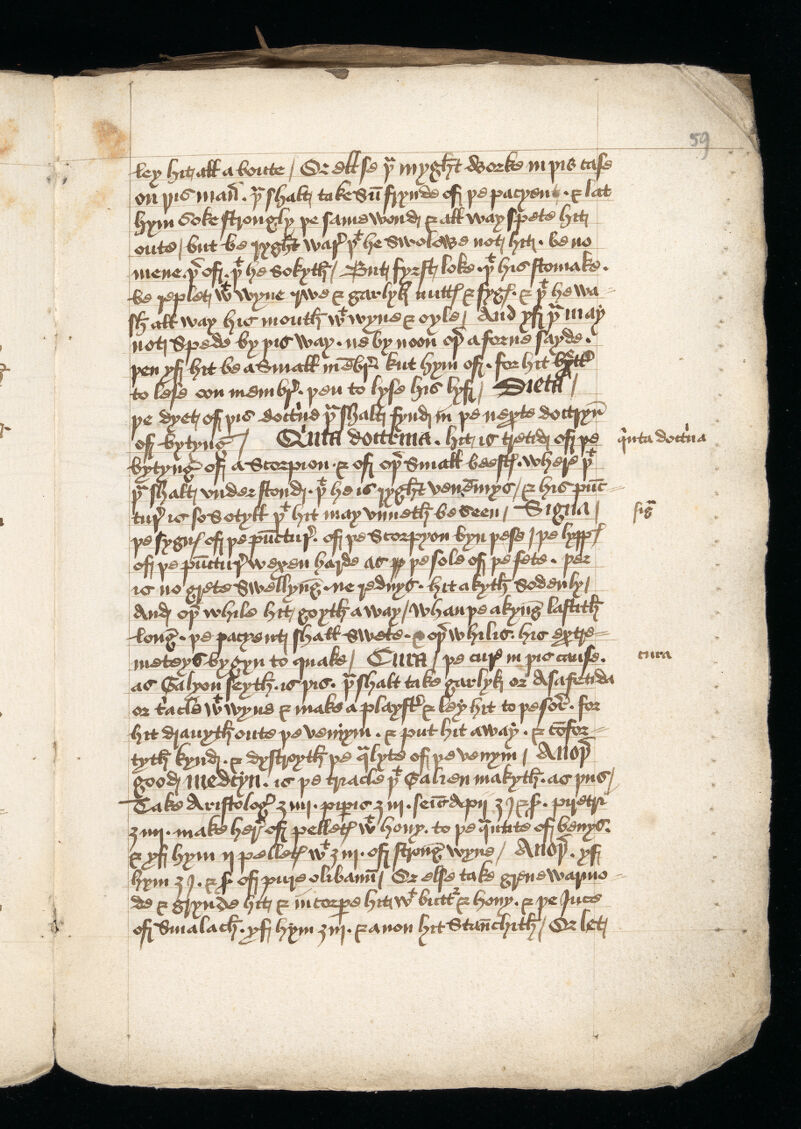 59
ley hit all a boute / Or ellse þu myght worke in þis case
on þis man̄. þu shalt take sū frynde of þe pacyent. & lat
hym soke strongly þe same wond & all way spete hit
oute / but be ryght war þt he swolowe not hit. be no
mene. þt he sokyth / But fyrst loke. þt his stomake.
be replet wt wyne rwe & garlyk nutt & fyg. & þt he wa
sh all way his mouth wt wyne & oyle / And yf þu may
not spede by þis way. ne by noon oþ a forne sayde.
þen yf hit be a small mēbr. kut hym of. for hit
to lese oon membr. þen to lyse his lyf / Dieta /
þe dyet of þis doctne þu shalt fynd in þe nexte doctryn
of bytyng / Quīta doctrina. hit is treted of þe
quinta doctna
bytyng of a Scorpion. & of oþ small beest. where þt
þu shalt vnder stond. þt he is ryght venemys / & his pūc
tur is so sotyll þt hit may vnneth be seen / Signa /
sig
þe sygn of þe pūctur. of þe Scorpyon byn þese / þe lypp
of þe pūctur wexen harde as þe sole of þe fete. þer
is no grete swellyng. ne rednys. hit akyth sodenly /
And oþ while hit goyth a way / whan þe akyng lastith
long. þe pacyent shall swete. & oþ whilis. his extre
meteys bygyn to quake / Cura / þe cure in þis cause.
cura
as Galyon seyth. is þis. þu shalt take garlyk or Asafetida
or tacle wt wyne & make a playst & ley hit to þe sor. for
hit drauyth oute þe venym. & put hit away. & cōfor
tyth kynd. & dystroyth þe qlyte of þe venym / Anoþ
good medcyn. is þe triacle þt Galien makyth. as þus /
Take Aristolog ʒ iiii. pipis ʒ iii. seīs Apii ʒ j & ß. piretri
ʒ iiii. make her of pellet wt hony. to þe quntite of benys.
& yf hym ii pellet wt ʒ iii. of strong wyne / Anoþ. yf
hym ʒ j. & ß of pure olibanū / Or else take grene warmo
de & grynde hit & incorpe hit wt butt & hony. & þe Iuce
of Smalach. yf hym ʒ iii. & anon hit stanchith / Or let